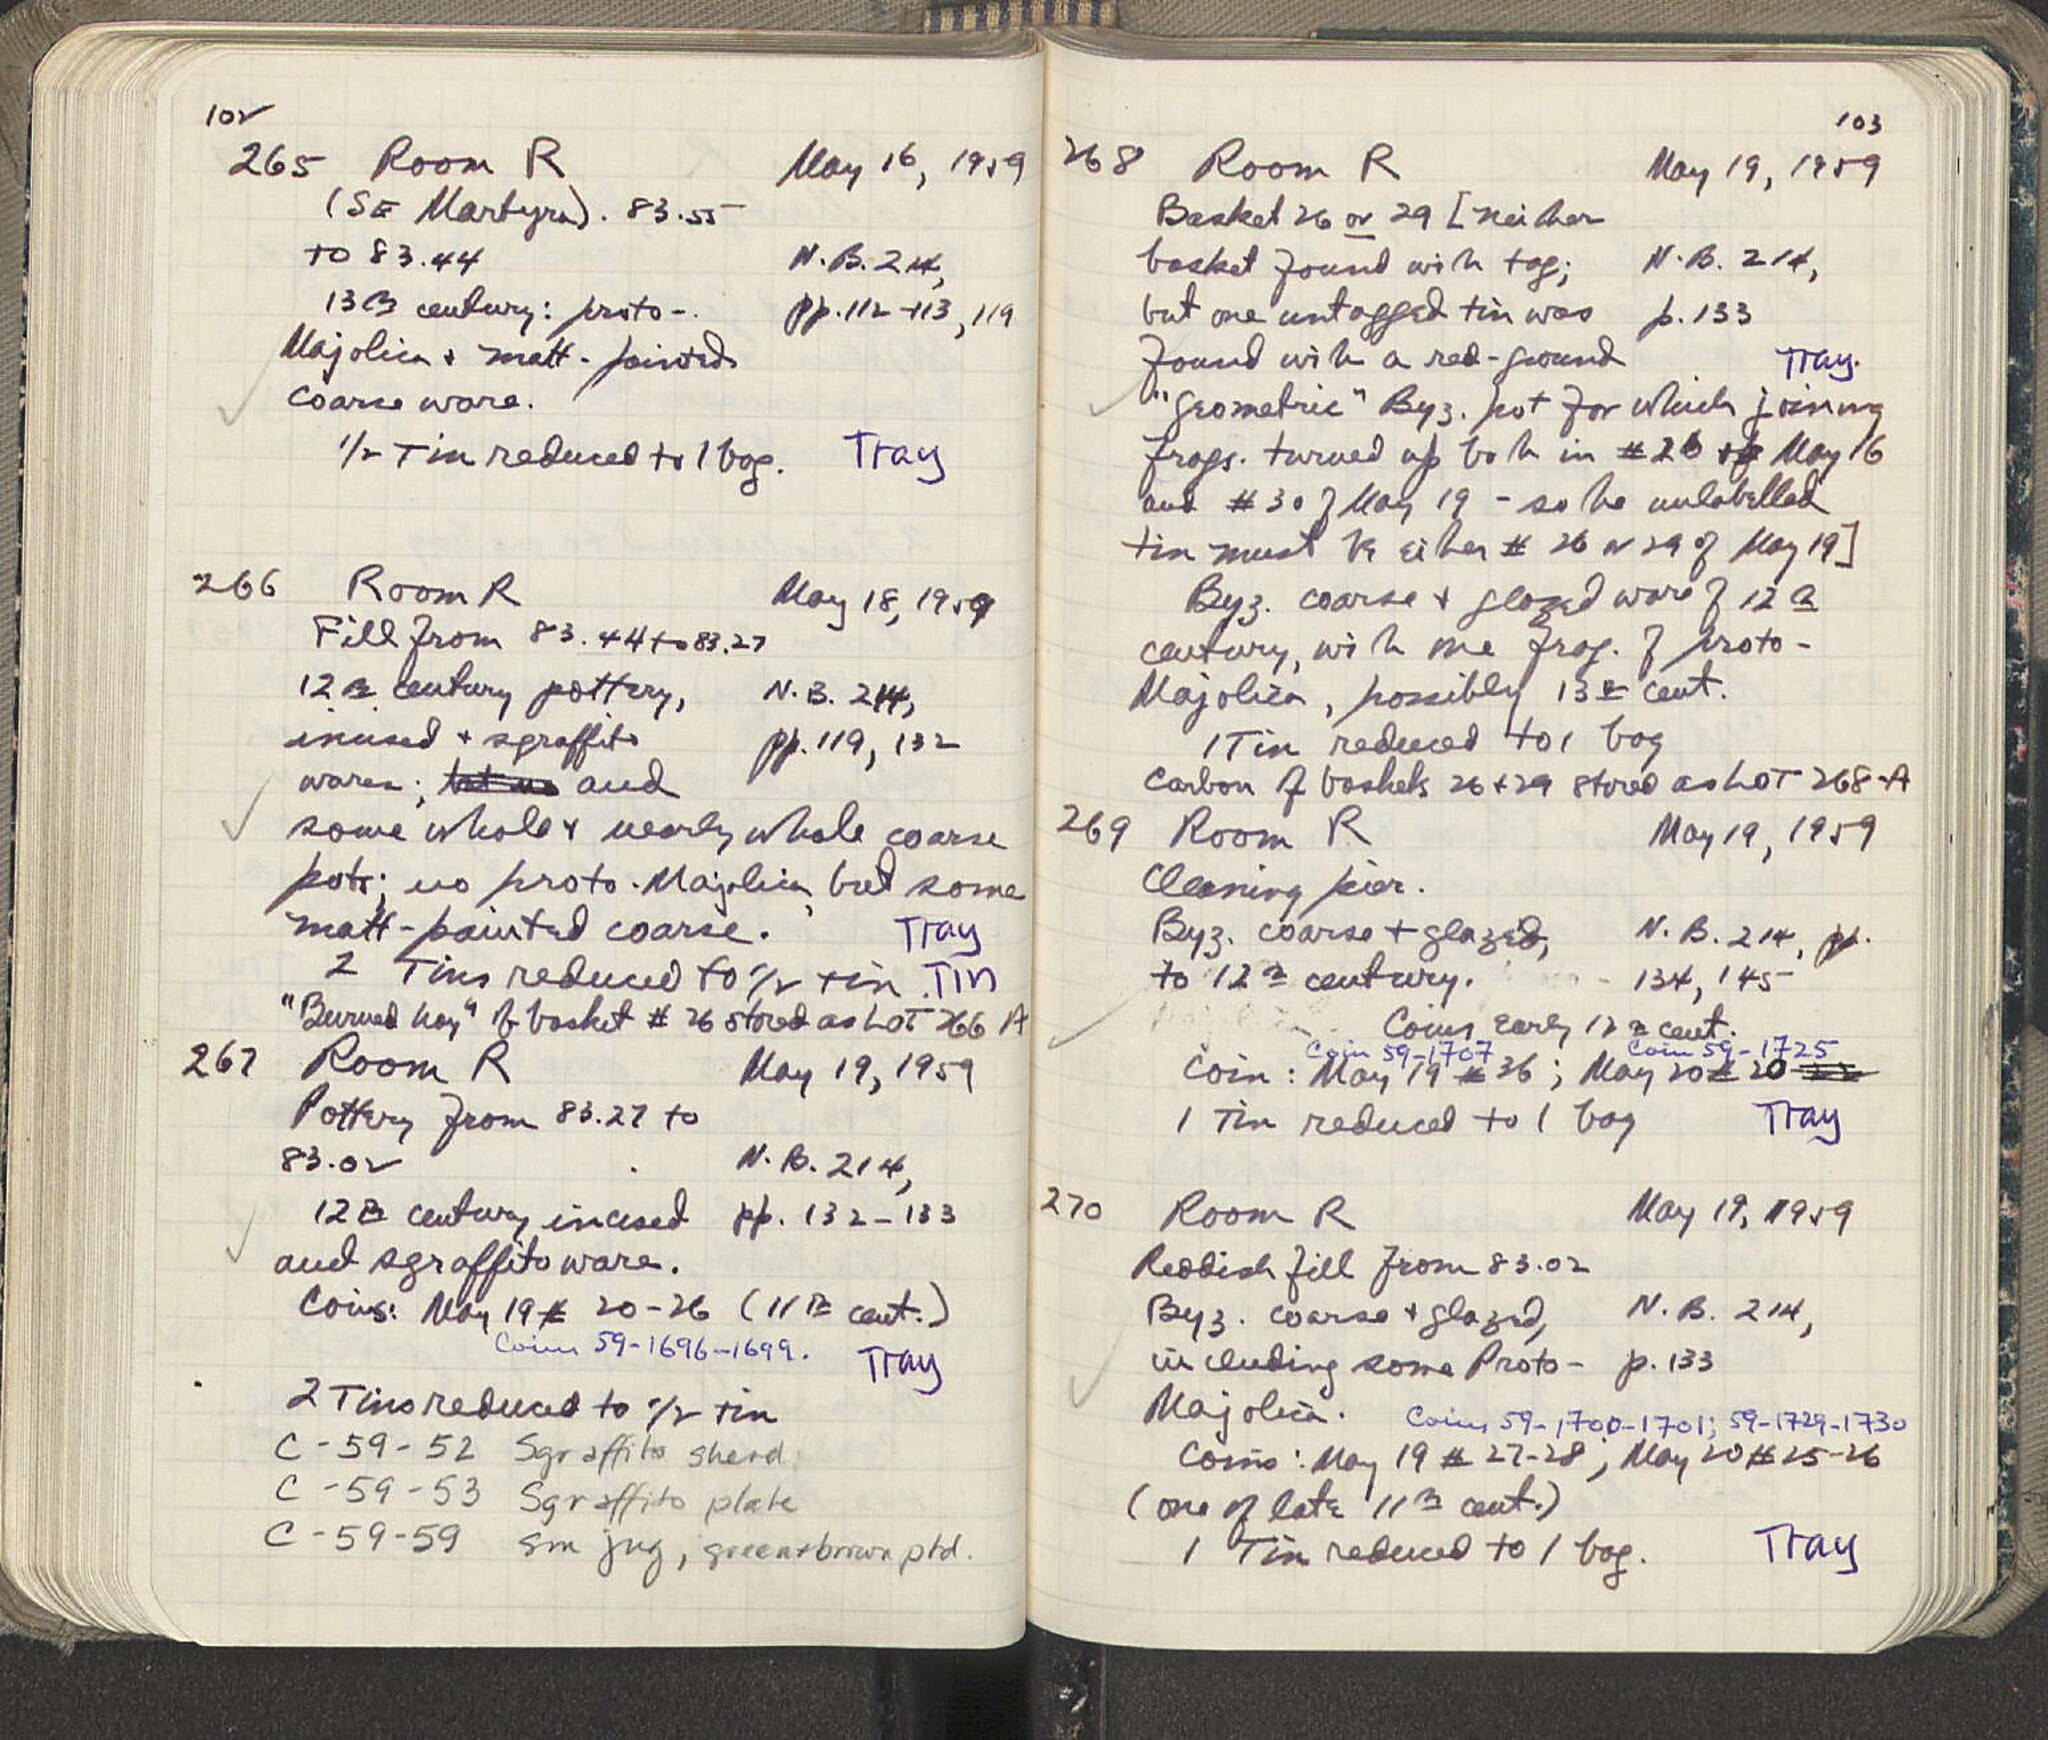 102
265 Room R May 16, 1959
(SE Martyra). 83.55
to 83.44 N.B. 214,
13th century: proto- pp. 112-113, 119
Majolica + matt-painted
coarse ware.
1/2 Tin reduced to 1 bag. Tray
266 Room R May 18, 1959
Fill from 83.44 to 83.27
12th century pottery, N.B. 214,
incised + sgraffito pp. 119, 132
wares; and
some whole + nearly whole coarse
pots; no proto-Majolica, but some
matt-painted coarse. Tray
2 Tins reduced to 1/2 tin. Tin
"Burned hay" of basket # 26 stored as LOT 266 A
267 Room R May 19, 1959
Pottery from 83.27 to
83.02 N.B. 214,
12th century incised pp. 132-133
and sgraffito ware.
Coins: May 19 # 20-26 (11th cent.)
Coins 59-1696-1699. Tray
2 Tins reduced to 1/2 tin
C-59-52 Sgraffito sherd
C-59-53 Sgraffito plate
C-59-59 sm jug, green+brown ptd.
103
268 Room R May 19, 1959
Basket 26 or 29 [neither
basket found with tag; N.B. 214,
but one untagged tin was p. 133
found with a red-ground Tray.
"geometric" Byz. pot for which joining
frags. turned up both in #26 of May 16
and #30 of May 19 - so the unlabelled
tin must be either # 26 or 29 of May 19]
Byz. coarse + glazed ware of 12th
century, with one frag. of proto-
Majolica, possibly 13th cent.
1 Tin reduced to 1 bag
Carbon of baskets 26+29 stored as LOT 268-A
269 Room R May 19, 1959
Cleaning pier.
Byz. coarse + glazed, N.B. 214, pp.
to 12th century. 134, 145
Coins early 12th cent.
Coin 59-1707 Coin 59-1725
Coin: May 19 #36; May 20 # 20
1 Tin reduced to 1 bag Tray
270 Room R May 19, 1959
Reddish fill from 83.02
Byz. coarse + glazed, N.B. 214,
including some Proto- p. 133
Majolica. Coins 59-1700-1701; 59-1729-1730
Coins: May 19 # 27-28; May 20 # 25-26
(one of late 11th cent.)
1 Tin reduced to 1 bag. Tray